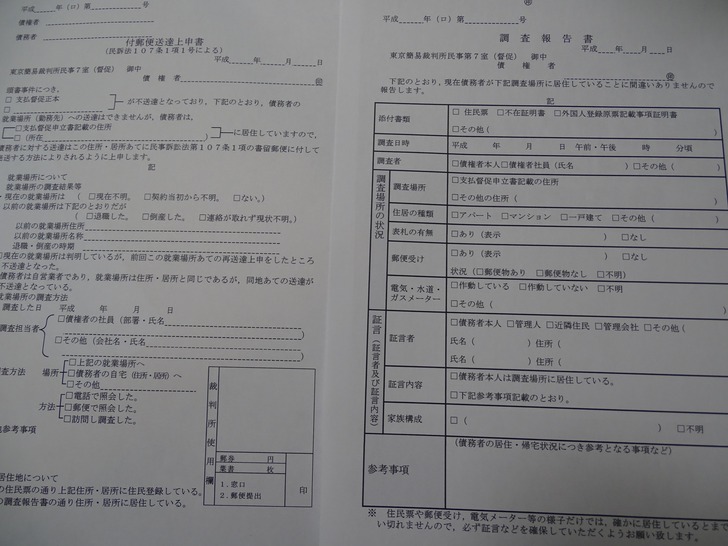 平成　　年（ロ）第　　　　　号
債権者
債務者
付郵便送達上申書
（民訴法１０７条１項１号による）
平成　　年　　月　　日
東京簡易裁判所民事７室（督促）　御中
債権者　　　　　　　　　　　㊞
頭書事件につき，
□ 支払督促正本
□
が不送達となっており，下記のとおり，債務者の
就業場所（勤務先）への送達はできませんが，債務者は，
□支払督促申立書記載の住所
□（所在　　　　　　　　　　　　）
に居住していますので，
債務者に対する送達はこの住所・居所あてに民事訴訟法第１０７条１項の書留郵便に付して
発送する方法によりされるように上申します。
記
就業場所について
就業場所の調査結果等
・現在の就業場所は　（　□現在不明。　□契約当初から不明。　□ない。）
以前の就業場所は下記のとおりだが
（　□退職した。　□倒産した。　□連絡が取れず現状不明。）
以前の就業場所住所
以前の就業場所名称
退職・倒産の時期
□現在の就業場所は判明しているが，前回この就業場所あての再送達上申をしたところ
不送達となった。
債務者は自営業者であり，就業場所は住所・居所と同じであるが，同地あての送達が
不送達となっている。
就業場所の調査方法
調査した日　　平成　　年　　月　　日
調査担当者
□債権者の社員（部署・氏名　　　　　　　　　　　）
□その他（会社名・氏名　　　　　　　　　　　　　）
調査方法　場所
□上記の就業場所へ
□債務者の自宅（住所・居所）へ
□その他
方法
□電話で照会した。
□郵便で照会した。
□訪問し調査した。
参考事項
裁判所使用欄
郵券　　　　円
葉書　　　　枚
１．窓口
２．郵便提出
印
居住地について
の住民票の通り上記住所・居所に住民登録している。
の調査報告書の通り住所・居所に居住している。
平成　　年（ロ）第　　　　　号
㊞
調　査　報　告　書
平成　　年　　月　　日
東京簡易裁判所民事第７室（督促）　御中
債　権　者　　　　　　　　　　　　㊞
下記のとおり，現在債務者が下記調査場所に居住していることに間違いありませんので
報告します。
記
添付書類
□ 住民票　□ 不在証明書　□外国人登録原票記載事項証明書
□その他（
調査日時
平成　　年　　月　　日　午前・午後　　時　　分頃
調査者
□債権者本人□債権者社員（氏名　　　　　　）□その他（
調査場所の状況
調査場所
□支払督促申立書記載の住所
□その他の住所（
住居の種類
□アパート　□マンション　□一戸建て　□その他（
表札の有無
□あり（表示　　　　　　　　　　）　□なし
郵便受け
□あり（表示　　　　　　　　　　）　□なし
状況（□郵便物あり　□郵便物なし　□不明）
電気・水道・
ガスメーター
□作動している　□作動していない　□不明
□その他（
証言（証言者及び証言内容）
証言者
□債務者本人　□管理人　□近隣住民　□管理会社　□その他（
氏名（　　　　　　　）住所（
氏名（　　　　　　　）住所（
証言内容
□債務者本人は調査場所に居住している。
□下記参考事項記載のとおり。
家族構成
□（　　　　　　　　　　　　　　　　　　　）　□不明
参考事項
（債務者の居住・帰宅状況につき参考となる事項など）
※　住民票や郵便受け，電気メーター等の様子だけでは，確かに居住しているとま
い切れませんので，必ず証言などを確保していただくようお願い致します。